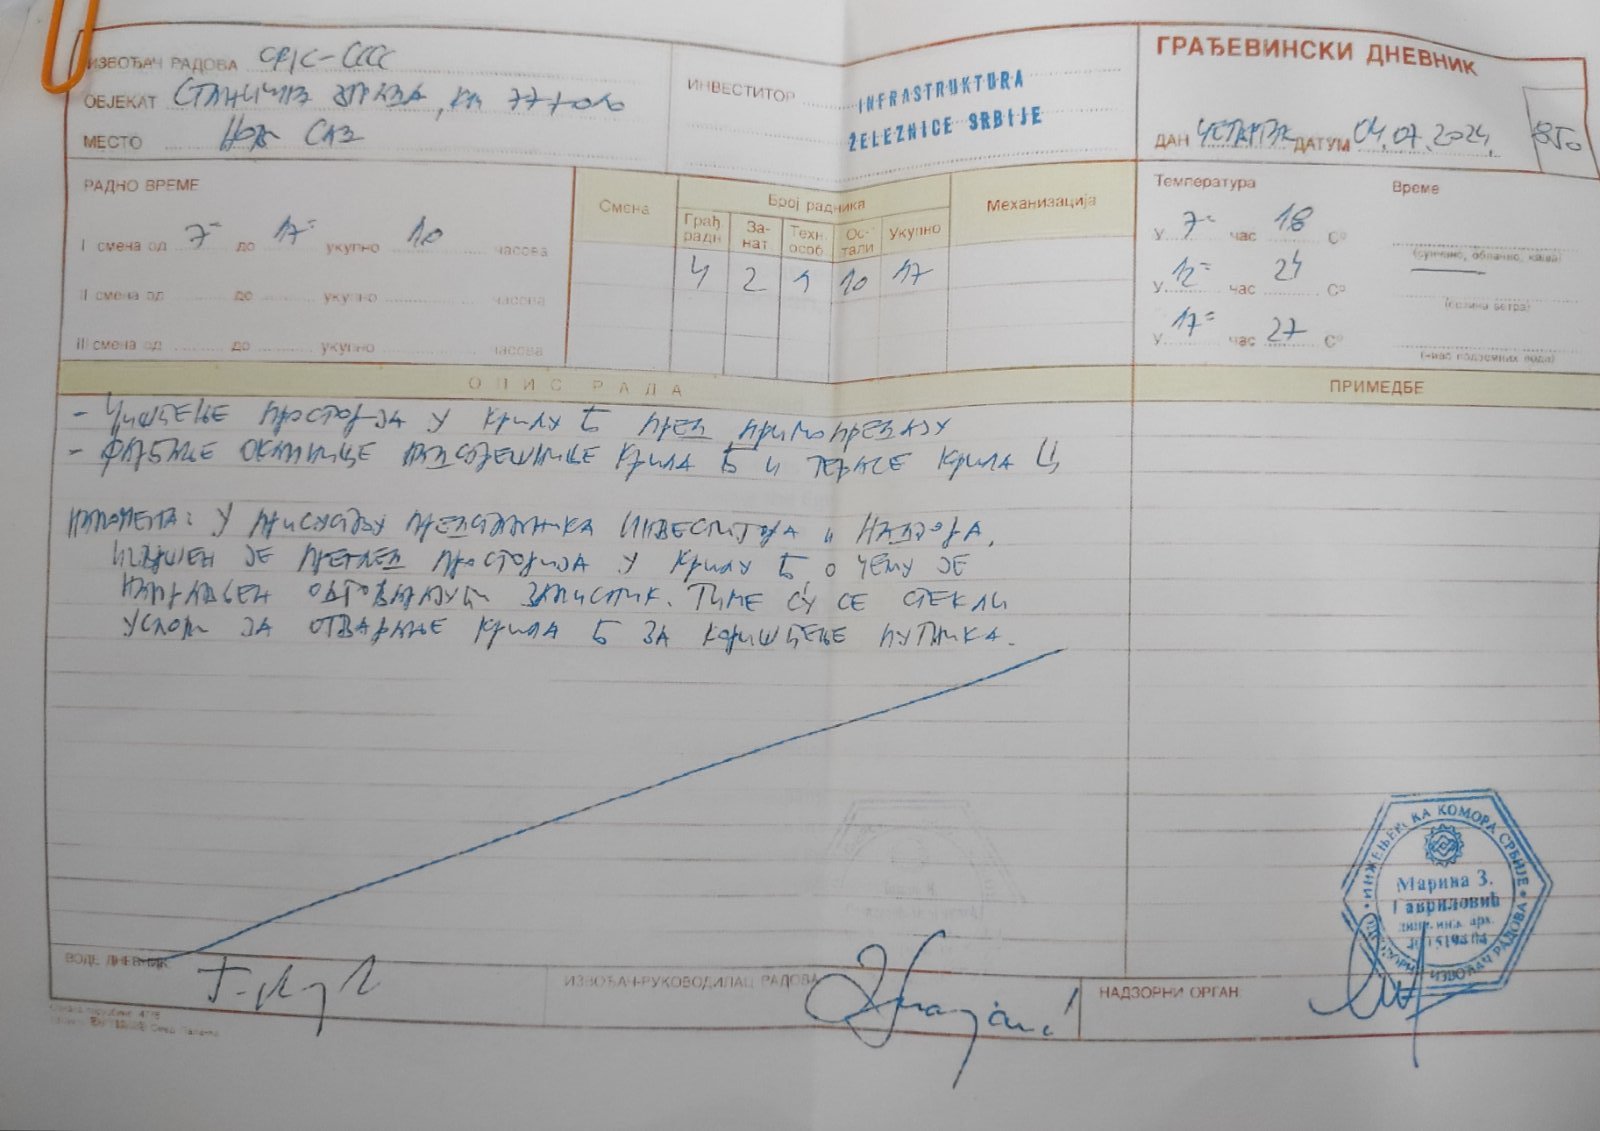 ГРАЂЕВИНСКИ ДНЕВНИК
ИЗВОЂАЧ РАДОВА CRIC-CCCC
ОБЈЕКАТ СТАНИЧНА ЗГРАДА, КМ 77+020
МЕСТО НОВИ САД
ИНВЕСТИТОР INFRASTRUKTURA
ŽELEZNICE SRBIJE
ДАН ЧЕТВРТАК ДАТУМ 04.07.2024.
РАДНО ВРЕМЕ
I смена од 7= до 17= укупно 10 часова
II смена од до укупно часова
III смена од до укупно часова
Смена Број радника Механизација
Грађ. радн За-нат Техн. особ Ос-тали Укупно
4 2 1 10 17
Температура Време
У 7= час 18 C°
(сунчано, облачно, киша)
У 12= час 24 C°
(јачина ветра)
У 17= час 27 C°
(ниво подземних вода)
ОПИС РАДА ПРИМЕДБЕ
- ЧИШЋЕЊЕ ПРОСТОРИЈА У КРИЛУ Б ПРЕД ПРИМОПРЕДАЈУ
- ФАРБАЊЕ ОКАПНИЦЕ НАДСТРЕШНИЦЕ КРИЛА Б И ТЕРАСЕ КРИЛА Ц
НАПОМЕНА: У ПРИСУСТВУ ПРЕДСТАВНИКА ИНВЕСТИТОРА И НАДЗОРА,
ИЗВРШЕН ЈЕ ПРЕГЛЕД ПРОСТОРИЈА У КРИЛУ Б О ЧЕМУ ЈЕ
НАПРАВЉЕН ОДГОВАРАЈУЋИ ЗАПИСНИК. ТИМЕ СУ СЕ СТЕКЛИ
УСЛОВИ ЗА ОТВАРАЊЕ КРИЛА Б ЗА КОРИШЋЕЊЕ ПУТНИКА.
ИНЖЕЊЕРСКА КОМОРА СРБИЈЕ
Марина З.
Гавриловић
дипл. инж. арх.
ОДГОВОРНИ ИЗВОЂАЧ РАДОВА
ВОДИ ДНЕВНИК
ИЗВОЂАЧ-РУКОВОДИЛАЦ РАДОВА
НАДЗОРНИ ОРГАН